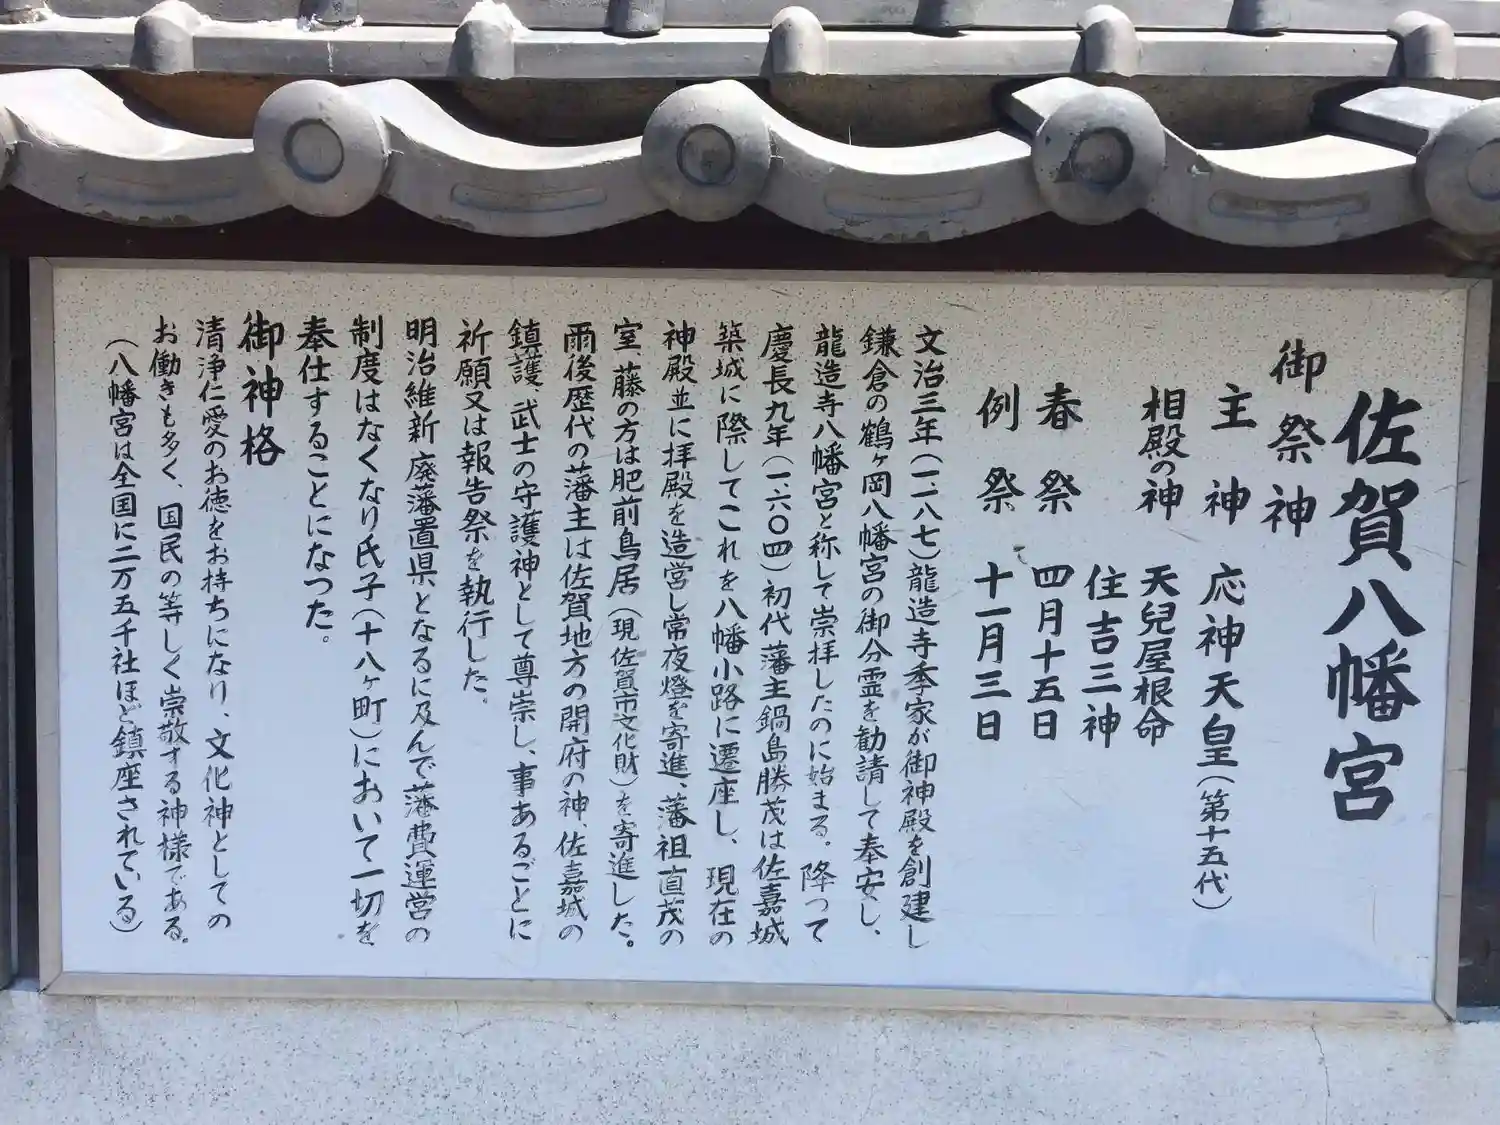 佐賀八幡宮
御祭神
主神 応神天皇(第十五代)
相殿の神 天兒屋根命
住吉三神
春祭 四月十五日
例祭 十一月三日
文治三年(一一八七)龍造寺季家が御神殿を創建し
鎌倉の鶴ヶ岡八幡宮の御分霊を勧請して奉安し、
龍造寺八幡宮と称して崇拝したのに始まる。降って
慶長九年(一六〇四)初代藩主鍋島勝茂は佐嘉城
築城に際してこれを八幡小路に遷座し、現在の
神殿並に拝殿を造営し常夜燈を寄進、藩祖直茂の
室、藤の方は肥前鳥居(現佐賀市文化財)を寄進した。
爾後歴代の藩主は佐賀地方の開府の神、佐嘉城の
鎮護、武士の守護神として尊崇し、事あるごとに
祈願又は報告祭を執行した。
明治維新、廃藩置県となるに及んで藩費運営の
制度はなくなり氏子(十八ヶ町)において一切を
奉仕することになつた。
御神格
清浄仁愛のお徳をお持ちになり、文化神としての
お働きも多く、国民の等しく崇敬する神様である。
(八幡宮は全国に二万五千社ほど鎮座されている)